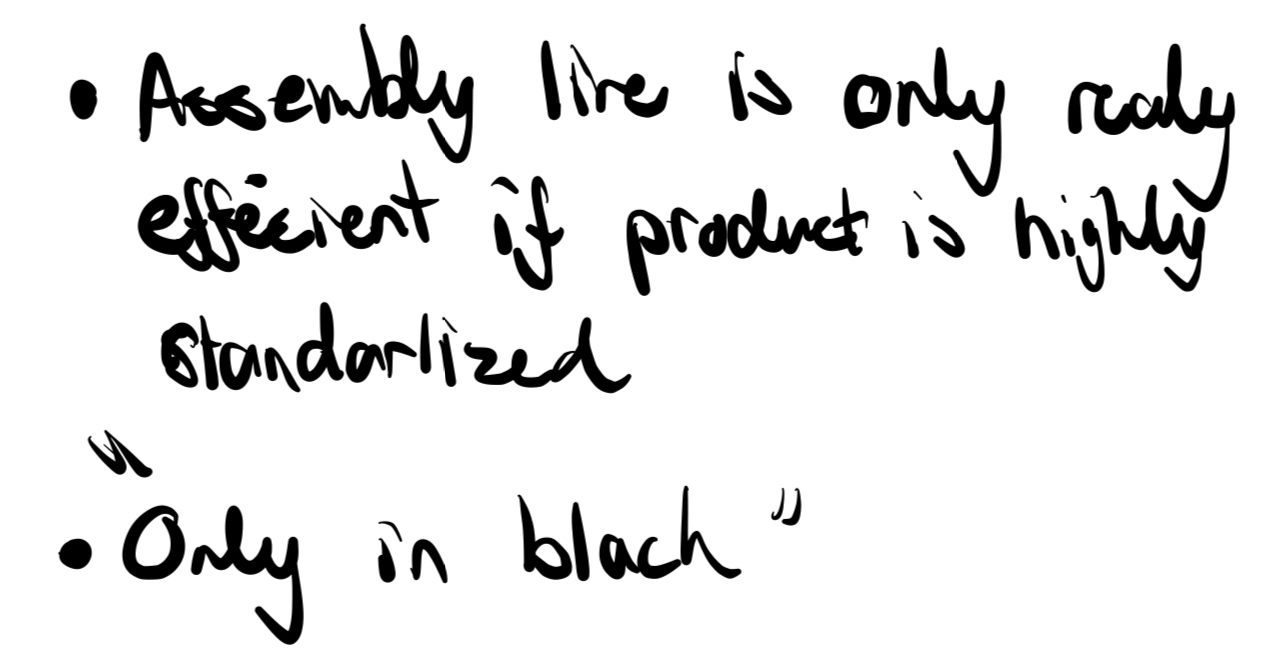 • Assembly line is only realy
effecient if product is highly
standarlized
• "Only in black"